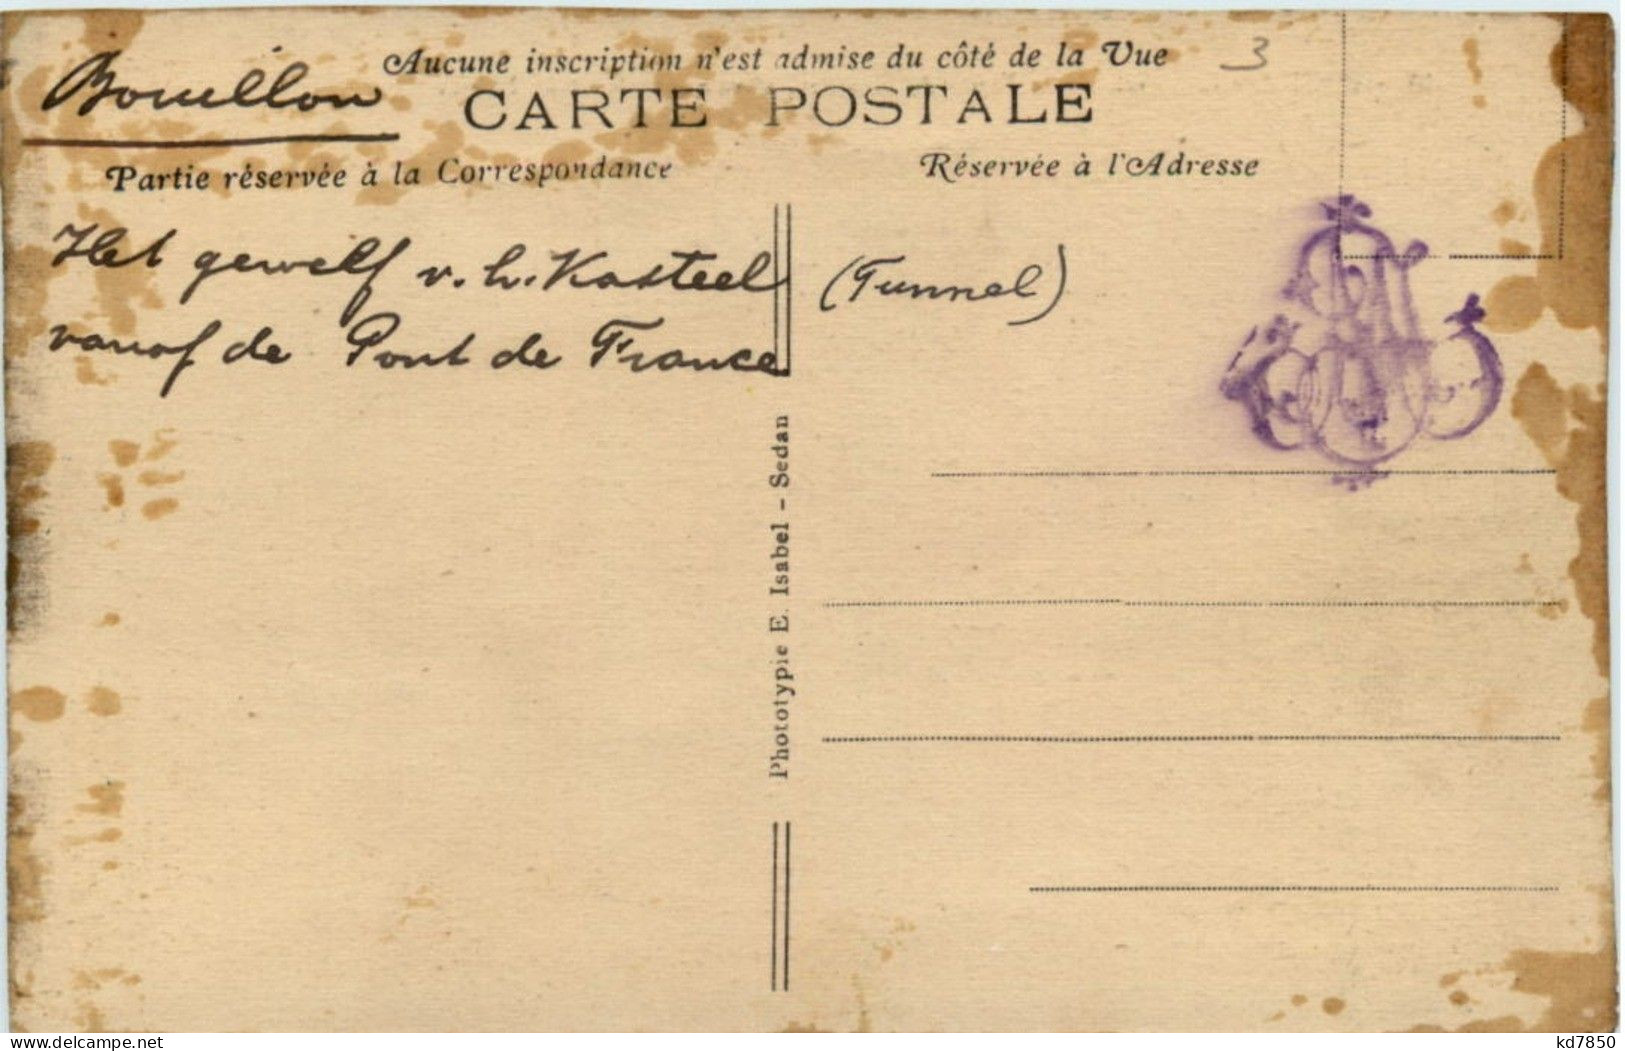 Aucune inscription n'est admise du côté de la Vue
3
Bouillon
CARTE POSTALE
Partie réservée à la Correspondance
Réservée à l'Adresse
Het gewelf v.h. Kasteel (Tunnel)
vanaf de Pont de France
Phototypie E. Isabel - Sedan
delcampe.net
kd7850